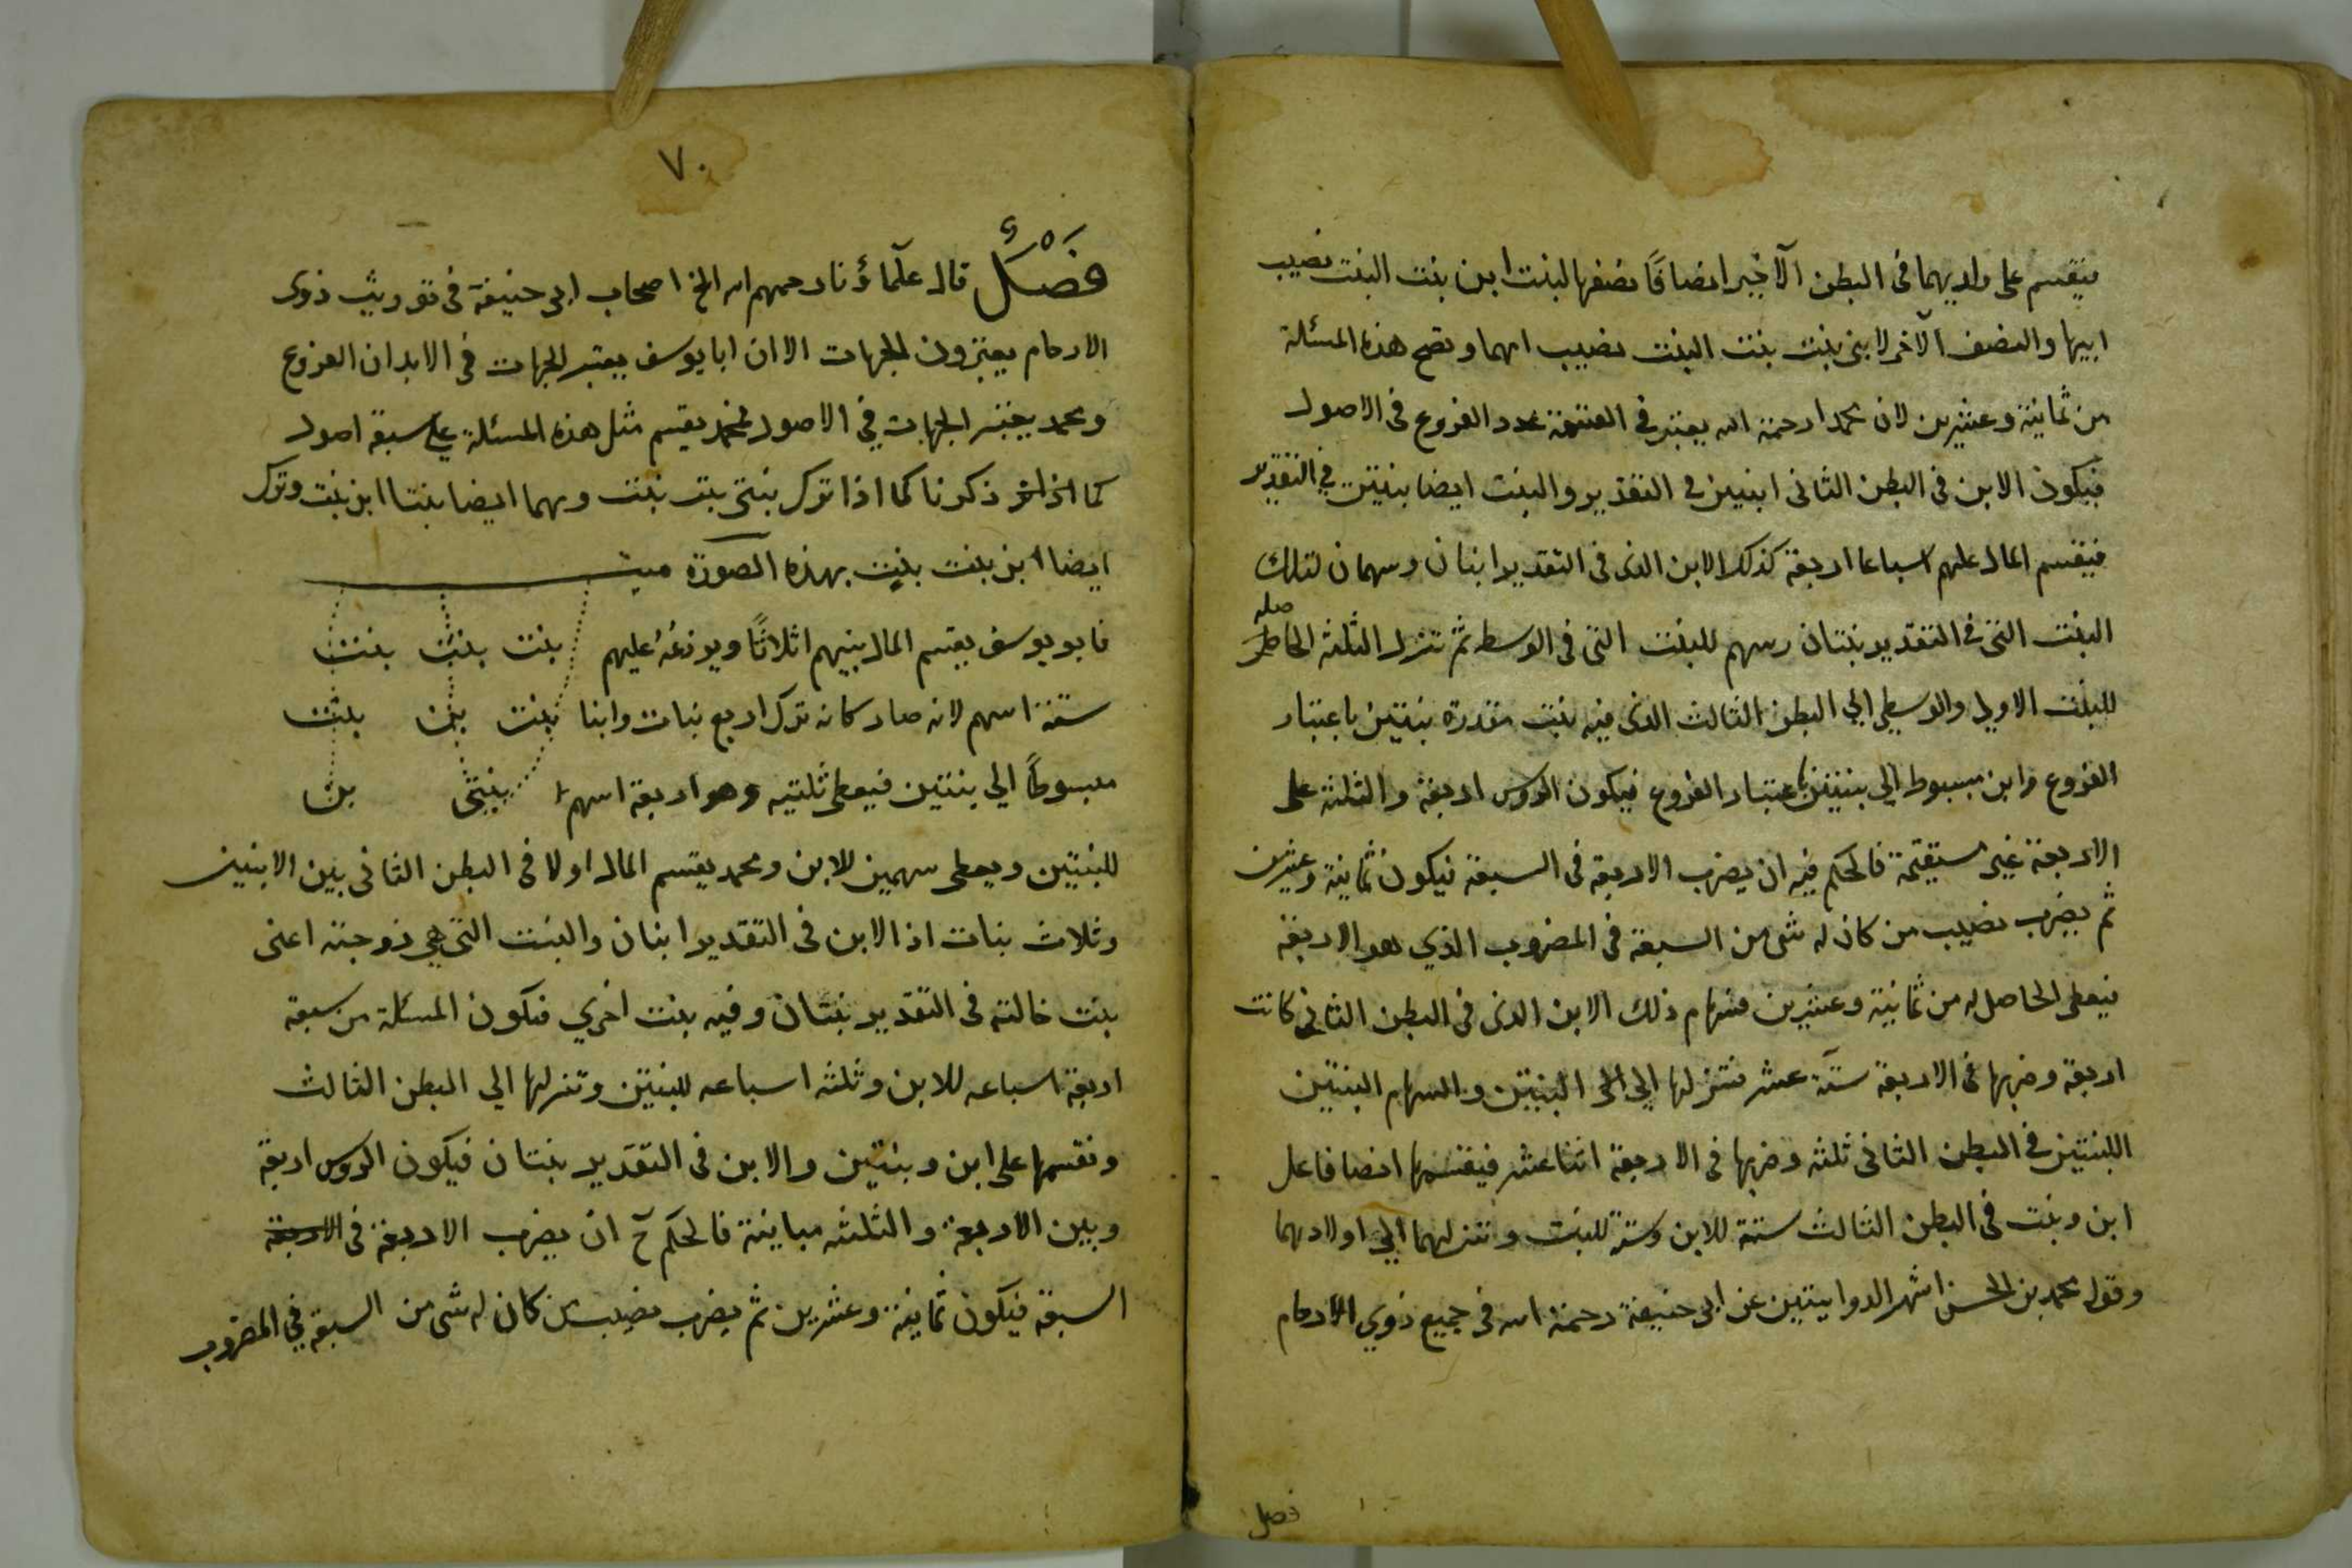 فيقسم على ولديهما فى البطن الآخير انصافًا نصفها لبنت ابن بنت البنت نصيب
ابيها والنصف الآخر لابنى بنت بنت البنت نصيب امهما وتصح هذه المسئلة
من ثمانية وعشرين لان محمدا رحمة الله يعتبر فى القسمة عدد الفروع فى الاصول
فيكون الابن فى البطن الثانى ابنين فى التقدير والبنت ايضا بنتين فى التقدير
فيقسم المال عليهم اسباعا اربعة كذلك الابن الذى فى التقدير ابنان وسهمان لتلك
البنت التى فى التقدير بنتان وسهم للبنت التى فى الوسط ثم تنزل الثلثة الحاصله
للبنت الاولى والوسطى الى البطن الثالث الذى فيه بنت مقدرة بنتين باعتبار
الفروع وابن مبسوط الى بنتين باعتبار الفروع فيكون الروس اربعة والثلثة على
الاربعة غير مستقيمة فالحكم فيه ان يضرب الاربعة فى السبعة فيكون ثمانية وعشرين
ثم يضرب نصيب من كان له شى من السبعة فى المضروب الذي هو الاربعة
فيعطى الحاصل له من ثمانية وعشرين فسهام ذلك الابن الذى فى البطن الثانى كانت
اربعة وضربها فى الاربعة ستة عشر فتنزلها الى البنتين والسهام البنتين
اللبنتين فى البطن الثانى ثلثه وضربها فى الاربعة اثنا عشر فيقسمها انصافا على
ابن وبنت فى البطن الثالث ستة للابن وستة للبنت وتنزلهما الي اولادهما
وقول محمد بن الحسن اشهر الروايتين عن ابى حنيفة رحمة الله فى جميع ذوي الارحام
فصل
٧٠
فَصْلٌ قال علمآؤنا رحمهم الله الخ اصحاب ابى حنيفة فى توريث ذوى
الارحام يعتبرون الجهات الا ان ابا يوسف يعتبر الجهات فى الابدان الفروع
ومحمد يعتبر الجهات في الاصول فمحمد يقسم مثل هذه المسئلة على سبعة اصول
كما ذكرنا كما اذا ترك بنتى بنت بنت وهما ايضا بنتا ابن بنت وترك
ايضا ابن بنت بنت بهذه الصورة ميت
فابو يوسف يقسم المال بينهم اثلاثًا ويوزعُهُ عليهم بنت بنت بنت
ستة اسهم لانه صار كانه ترك اربع بنات وابنا بنت بن بنت
مبسوطًا الي بنتين فيعطى ثلثيه وهو اربعة اسهم بنتى بن
للبنتين ويعطى سهمين للابن ومحمد يقسم المال اولا فى البطن الثانى بين الابنين
وثلاث بنات اذ الابن فى التقدير ابنان والبنت التى هي زوجته اعنى
بنت خالته فى التقدير بنتان وفيه بنت اخري فتكون المسئلة من سبعة
اربعة اسباعه للابن وثلثه اسباعه للبنتين وتنزلها الي البطن الثالث
ونقسمها على ابن وبنتين والابن فى التقدير بنتان فيكون الروس اربعة
وبين الاربعة والثلثه مباينة فالحكم ح ان يضرب الاربعة فى الاربعة
السبعة فيكون ثمانية وعشرين ثم يضرب نصيب من كان له شى من السبعة في المضروب